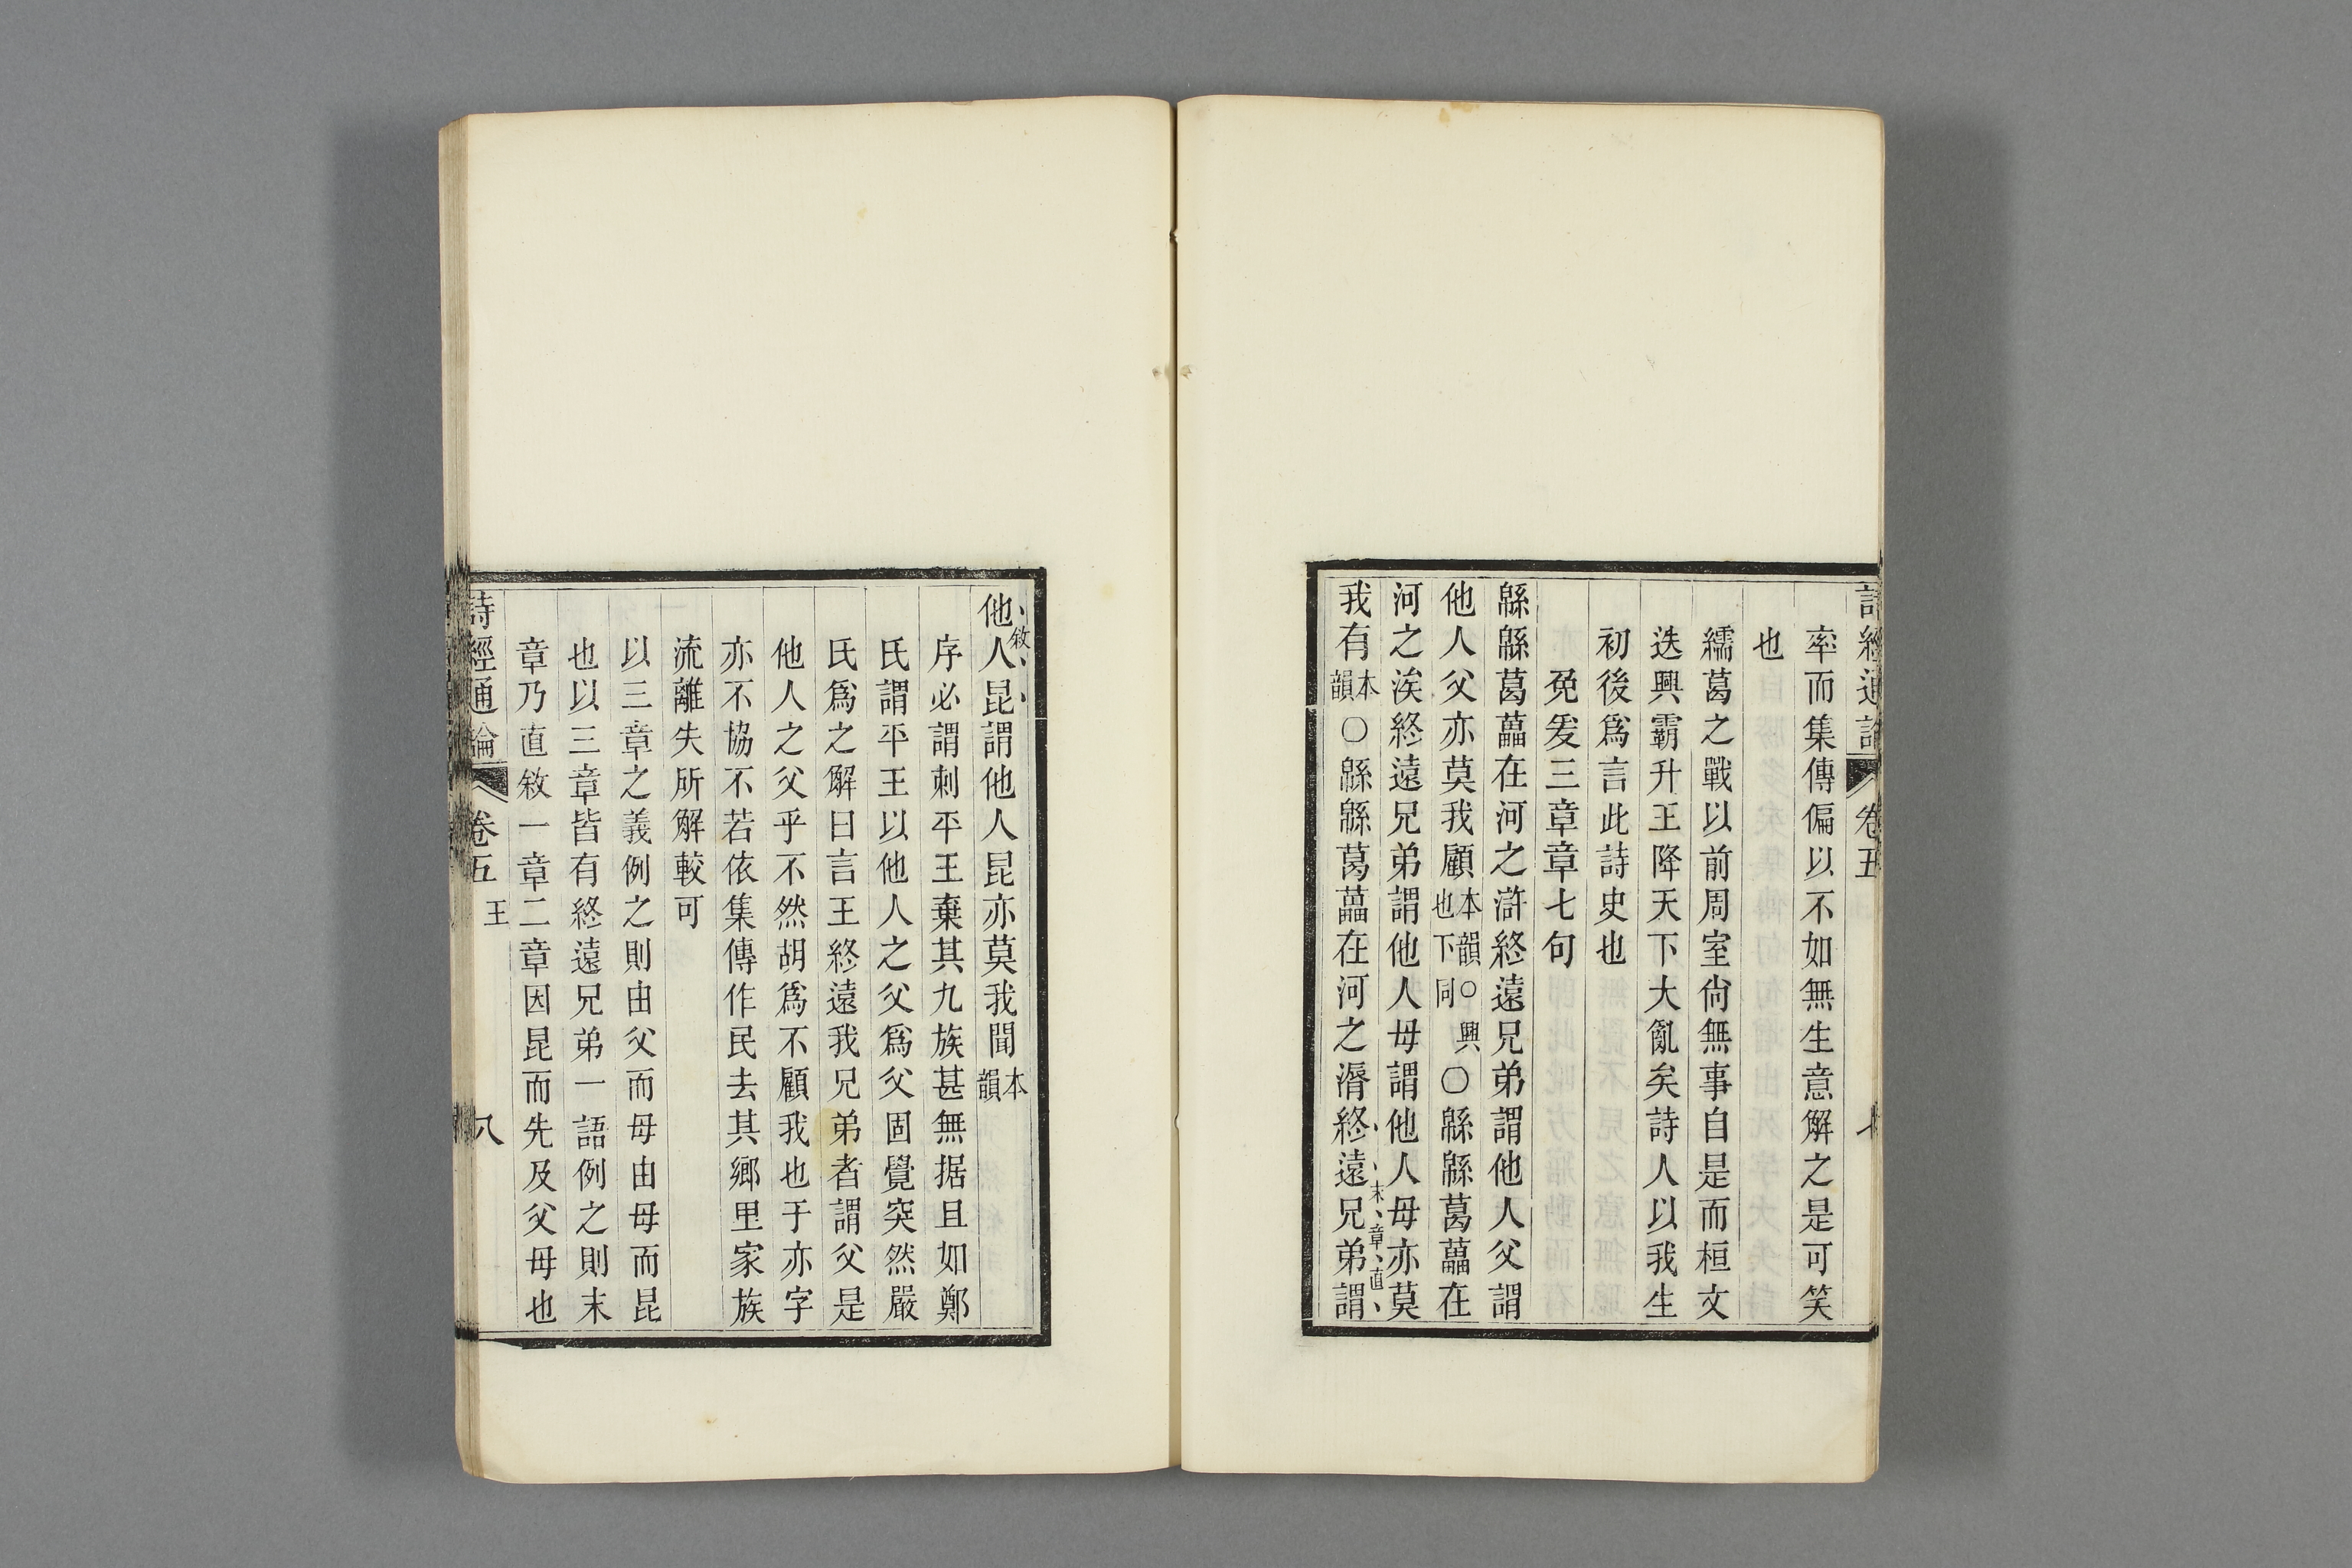 詩經通論 卷五 七
率而集傳偏以不如無生意解之是可笑
也
繻葛之戰以前周室尙無事自是而桓文
迭興霸升王降天下大亂矣詩人以我生
初後爲言此詩史也
兔爰三章章七句
緜緜葛藟在河之滸終遠兄弟謂他人父謂
他人父亦莫我顧本韻○興也下同○緜緜葛藟在
河之涘終遠兄弟謂他人母謂他人母亦莫
我有本韻○緜緜葛藟在河之漘終遠兄弟謂
末章直
敘
他人昆謂他人昆亦莫我聞本韻
序必謂刺平王棄其九族甚無据且如鄭
氏謂平王以他人之父爲父固覺突然嚴
氏爲之解曰言王終遠我兄弟者謂父是
他人之父乎不然胡爲不顧我也于亦字
亦不協不若依集傳作民去其鄉里家族
流離失所解較可
以三章之義例之則由父而母由母而昆
也以三章皆有終遠兄弟一語例之則末
章乃直敘一章二章因昆而先及父母也
詩經通論 卷五 王 八